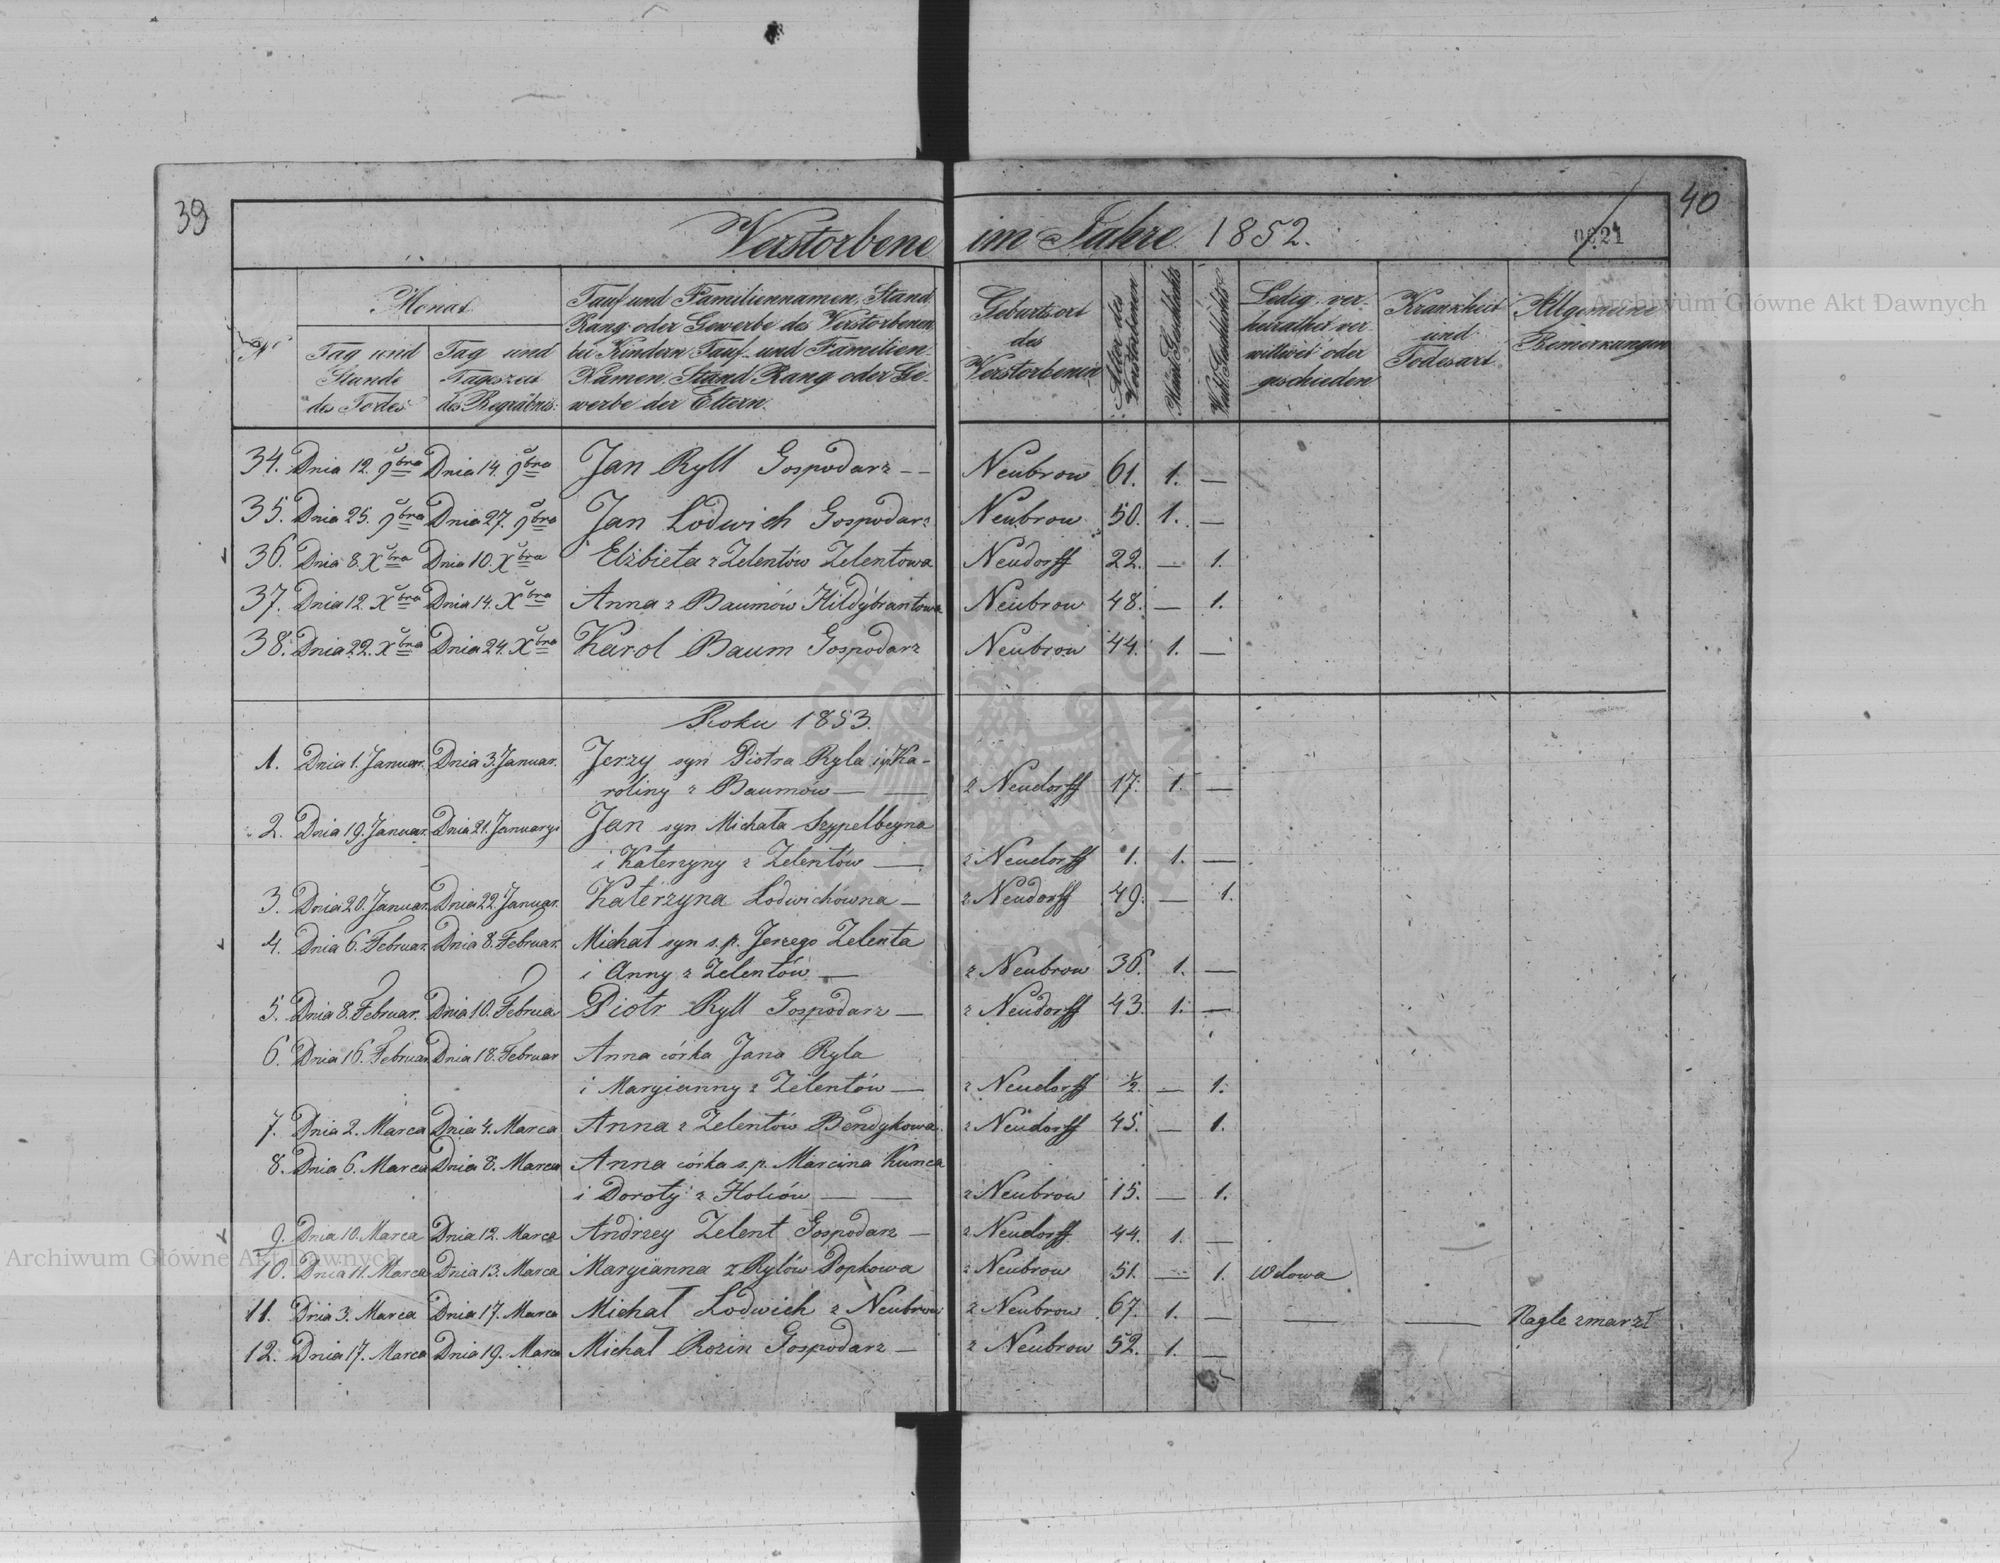 39
40
Verstorbene im Jahre 1852.
0021
Archiwum Główne Akt Dawnych
Nº
Monat
Tag und
Stunde
des Todes
Tag und
Tageszeit
des Begräbnis:
Tauf und Familiennamen, Stand
Rang oder Gewerbe des Verstorbenen
bei Kindern Tauf und Familien-
Namen, Stand Rang oder Ge-
werbe der Eltern.
Geburtsort
des
Verstorbenen
Alter des
Verstorbenen
Mänl. Geschlechts
Weibl. Geschlechts
Ledig, ver-
heirathet ver-
wittwet oder
geschieden
Krankheit
und
Todesart
Allgemeine
Bemerkungen
34. Dnia 12. 9bra Dnia 14. 9bra Jan Ryll Gospodarz - - Neubrow 61. 1. —
35. Dnia 25. 9bra Dnia 27. 9bra Jan Lodwich Gospodarz Neubrow 50. 1. —
36. Dnia 8. Xbra Dnia 10. Xbra Elżbieta z Zelentów Zelentowa Neudorff 22. — 1.
37. Dnia 12. Xbra Dnia 14. Xbra Anna z Baumów Hildybrantowa Neubrow 48. — 1.
38. Dnia 22. Xbra Dnia 24. Xbra Karol Baum Gospodarz Neubrow 44. 1. —
Roku 1853.
1. Dnia 1. Januar. Dnia 3. Januar. Jerzy syn Piotra Ryla i Ka-
roliny z Baumów — — z Neudorff 17. 1. —
2. Dnia 19. Januar. Dnia 21. Januaryi Jan syn Michała Seypelbeyna
i Katerzyny z Zelentów — z Neudorff 1. 1. —
3. Dnia 20. Januar. Dnia 22. Januar. Katerzyna Lodwichówna — z Neudorff 49. — 1.
4. Dnia 6. Februar. Dnia 8. Februar. Michał syn s.p. Jerzego Zelenta
i Anny z Zelentów — z Neubrow 36. 1. —
5. Dnia 8. Februar. Dnia 10. Februa Piotr Ryll Gospodarz — z Neudorff 43. 1. —
6. Dnia 16. Februar Dnia 18. Februar Anna córka Jana Ryla
i Maryianny z Zelentów — z Neudorff ½. — 1.
7. Dnia 2. Marca Dnia 4. Marca Anna z Zelentów Bendykowa. z Neudorff 45. — 1.
8. Dnia 6. Marca Dnia 8. Marca Anna córka s.p. Marcina Kunca
i Doroty z Holców — — z Neubrow 15. — 1.
9. Dnia 10. Marca Dnia 12. Marca Andrzey Zelent Gospodarz — z Neudorff. 44. 1. —
Archiwum Główne Akt Dawnych
10. Dnia 11. Marca Dnia 13. Marca Maryianna z Rylów Popkowa z Neubrow 51. — 1. Wdowa
11. Dnia 3. Marca Dnia 17. Marca Michał Lodwich z Neubrow z Neubrow 67. 1. — — — Nagle zmarzł
12. Dnia 17. Marca Dnia 19. Marca Michał Rozin Gospodarz — z Neubrow 52. 1. —